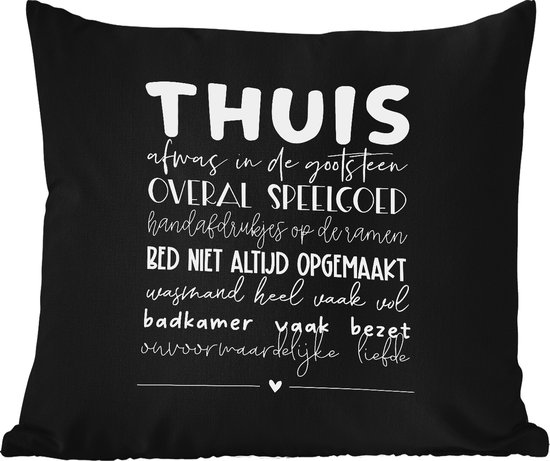 THUIS
afwas in de gootsteen
OVERAL SPEELGOED
handafdrukjes op de ramen
BED NIET ALTIJD OPGEMAAKT
wasmand heel vaak vol
badkamer vaak bezet
onvoorwaardelijke liefde